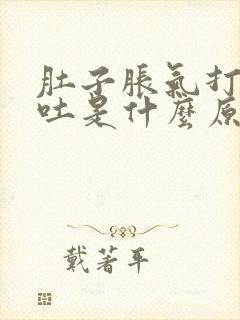 肚子脹氣打
吐是什麼原
戴著平